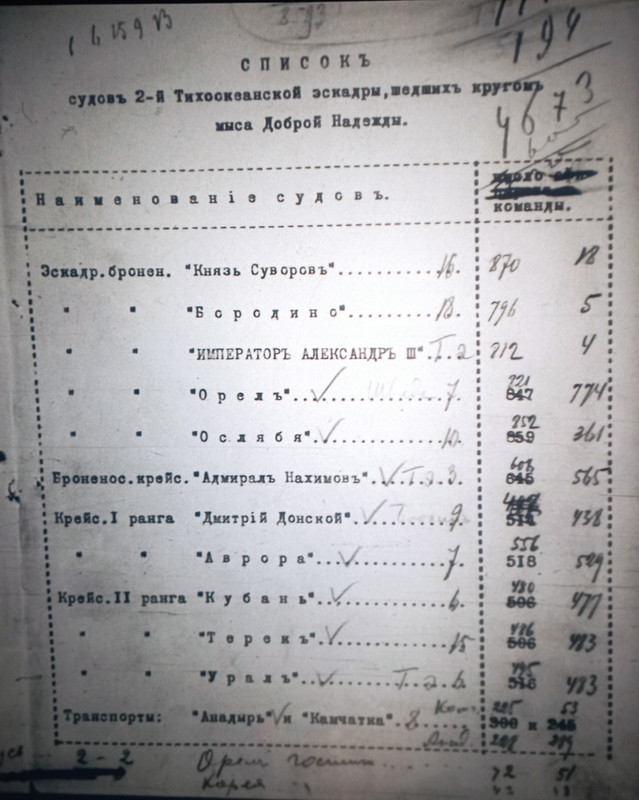 1 6 159 13
194
4673
СПИСОКЪ
судовъ 2-й Тихоокеанской эскадры,шедшихъ кругомъ
мыса Доброй Надежды.
Наименованіе судовъ.
команды.
Эскадр.бронен. "Князь Суворовъ"..........16. 870 18
" " "Бородино".........13. 796 5
" " "ИМПЕРАТОРЪ АЛЕКСАНДРЪ Ш". Т.2 212 4
" " "Орелъ"...✓ 7. 721 847 774
" " "Ослябя".✓ 10. 252 859 361
Броненос.крейс. "Адмиралъ Нахимовъ".✓ Т.2 3. 608 645 565
Крейс.I ранга "Дмитрій Донской".✓ 9 514 438
" " "Аврора"...✓ 7. 556 518 529
Крейс.II ранга "Кубань"..✓ 6. 480 506 477
" " "Терекъ".✓ 15 486 506 483
" " "Уралъ"..✓ Т.2.6. 495 516 483
Транспорты: "Анадырь"✓и "Камчатка". 8 Кам. 205 53
300 и 245
Анад. 292
2 - 2 Орелъ госпит. 72 51
Корея